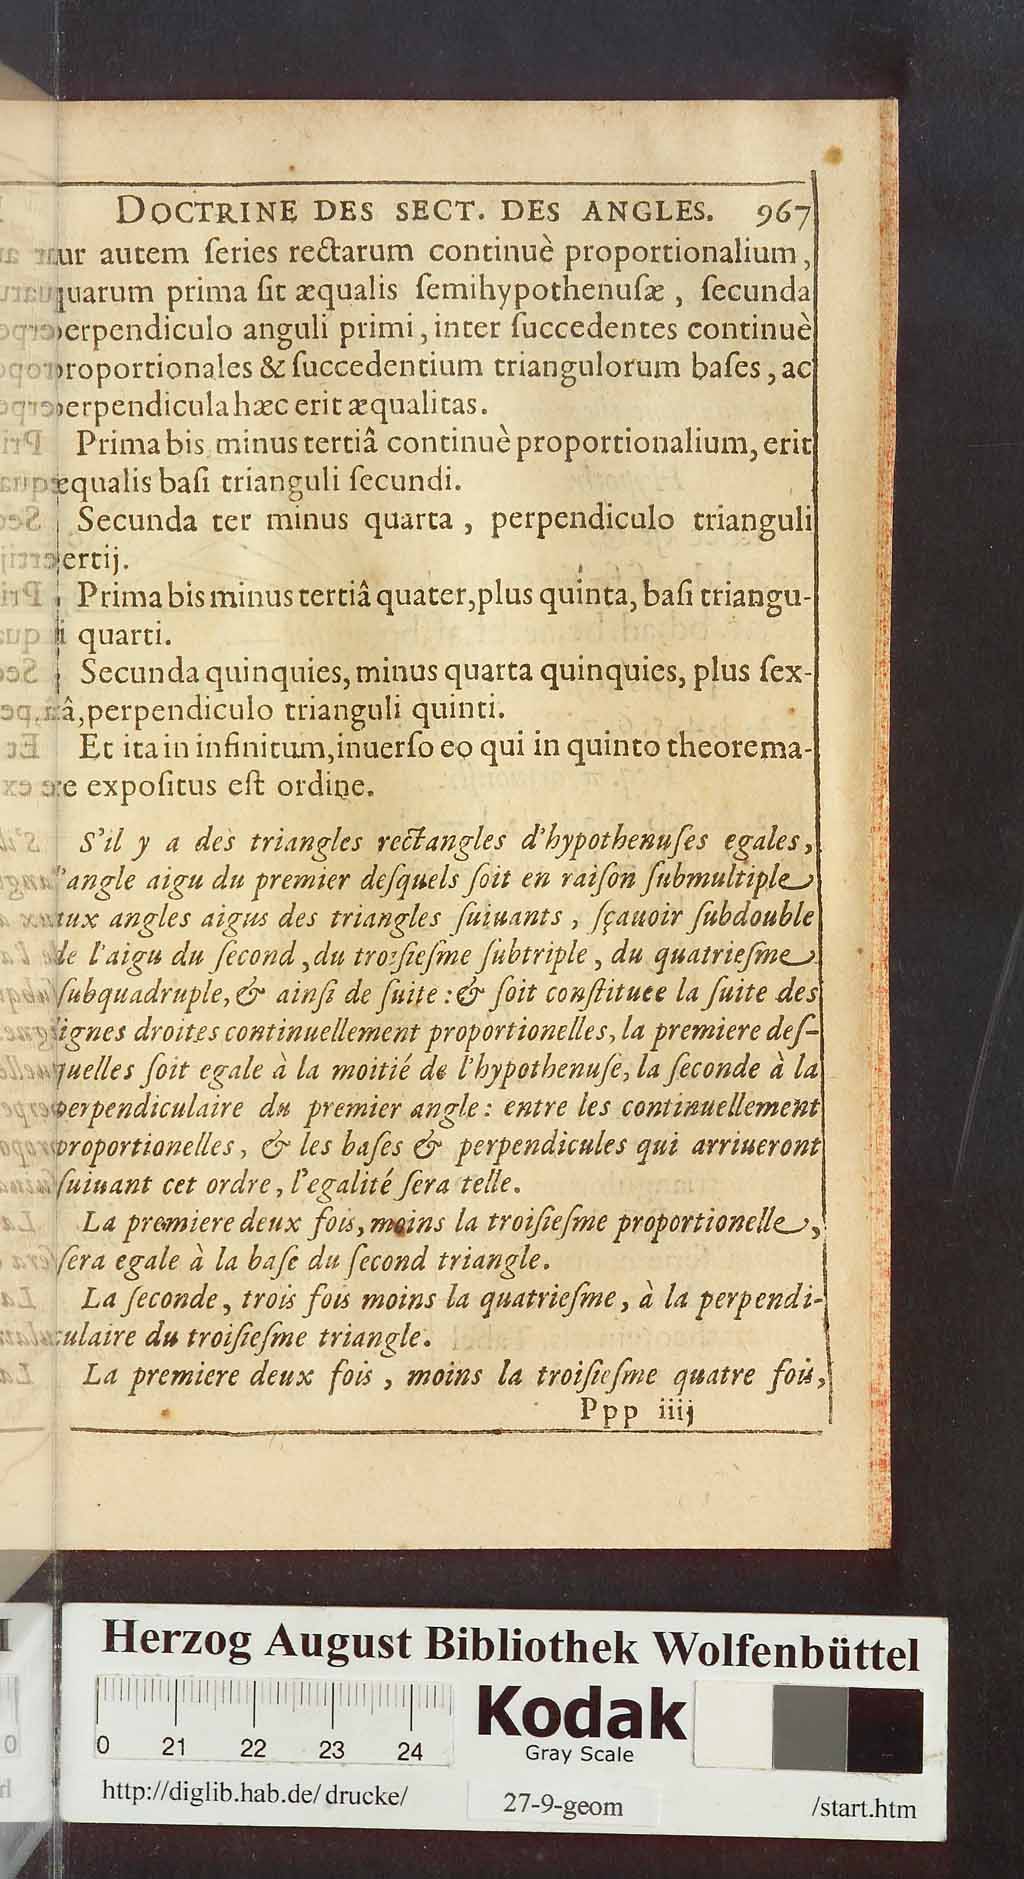 DOCTRINE DES SECT. DES ANGLES. 967
ur autem ſeries rectarum continuè proportionalium,
quarum prima ſit æqualis ſemihypothenuſæ, ſecunda
perpendiculo anguli primi, inter ſuccedentes continuè
proportionales & ſuccedentium triangulorum baſes, ac
perpendicula hæc erit æqualitas.
Prima bis minus tertiâ continuè proportionalium, erit
æqualis baſi trianguli ſecundi.
Secunda ter minus quarta, perpendiculo trianguli
ertij.
Prima bis minus tertiâ quater, plus quinta, baſi triangu-
li quarti.
Secunda quinquies, minus quarta quinquies, plus ſex-
tâ, perpendiculo trianguli quinti.
Et ita in infinitum, inuerſo eo qui in quinto theorema-
te expoſitus eſt ordine.
S'il y a des triangles rectangles d'hypothenuſes egales,
l'angle aigu du premier deſquels ſoit en raiſon ſubmultiple
aux angles aigus des triangles ſuiuants, ſçauoir ſubdouble
de l'aigu du ſecond, du troiſieſme ſubtriple, du quatrieſme
ſubquadruple, & ainſi de ſuite: & ſoit conſtituee la ſuite des
lignes droites continuellement proportionelles, la premiere deſ-
quelles ſoit egale à la moitié de l'hypothenuſe, la ſeconde à la
perpendiculaire du premier angle: entre les continuellement
proportionelles, & les baſes & perpendicules qui arriueront
ſuiuant cet ordre, l'egalité ſera telle.
La premiere deux fois, moins la troiſieſme proportionelle,
ſera egale à la baſe du ſecond triangle.
La ſeconde, trois fois moins la quatrieſme, à la perpendi-
culaire du troiſieſme triangle.
La premiere deux fois, moins la troiſieſme quatre fois,
Ppp iiij
Herzog August Bibliothek Wolfenbüttel
Kodak
Gray Scale
0 21 22 23 24
http://diglib.hab.de/drucke/ 27-9-geom /start.htm